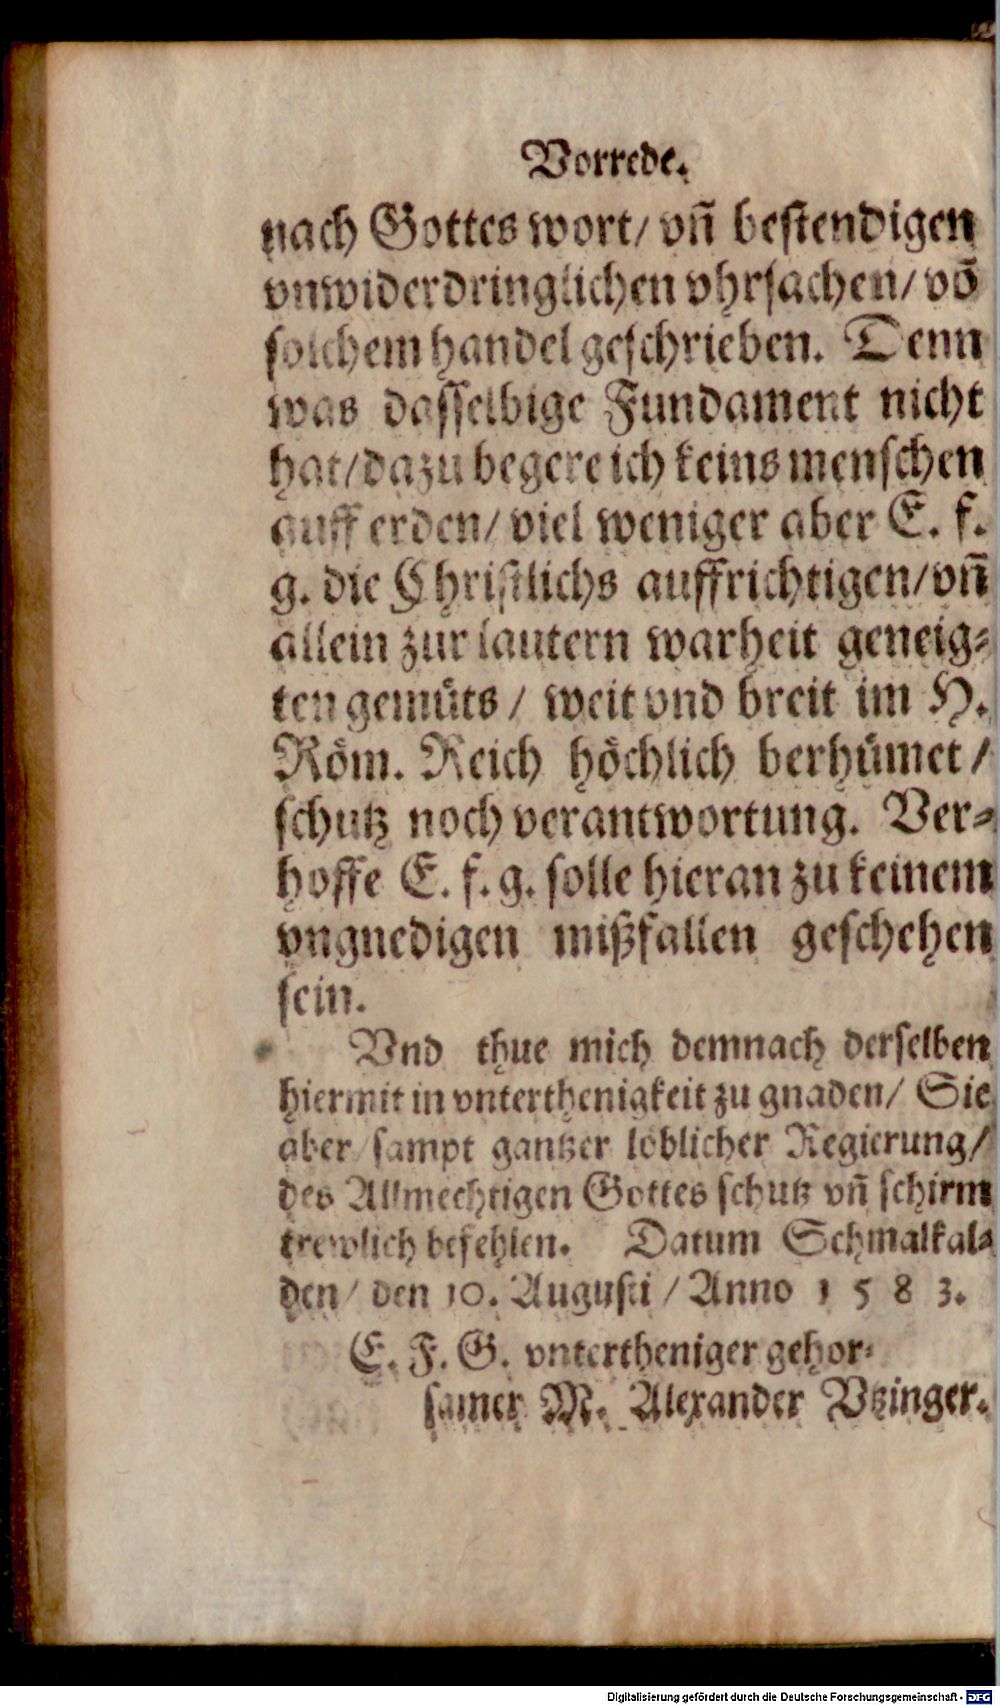 Vorrede.
nach Gottes wort/ vñ bestendigen
vnwiderdringlichen vhrsachen/ võ
solchem handel geschrieben. Denn
was dasselbige Fundament nicht
hat/ dazu begere ich keins menschen
auff erden/ viel weniger aber E. f.
g. die Christlichs auffrichtigen/ vñ
allein zur lautern warheit geneig⸗
ten gemüts / weit vnd breit im H.
Röm. Reich höchlich berhümet /
schutz noch verantwortung. Ver⸗
hoffe E. f. g. solle hieran zu keinem
vngnedigen mißfallen geschehen
sein.
Vnd thue mich demnach derselben
hiermit in vnterthenigkeit zu gnaden/ Sie
aber / sampt gantzer löblicher Regierung/
des Allmechtigen Gottes schutz vñ schirm
trewlich befehlen. Datum Schmalkal⸗
den/ den 10. Augusti / Anno 1 5 8 3.
E. F. G. vntertheniger gehor⸗
samer M. Alexander Vtzinger.
Digitalisierung gefördert durch die Deutsche Forschungsgemeinschaft - DFG